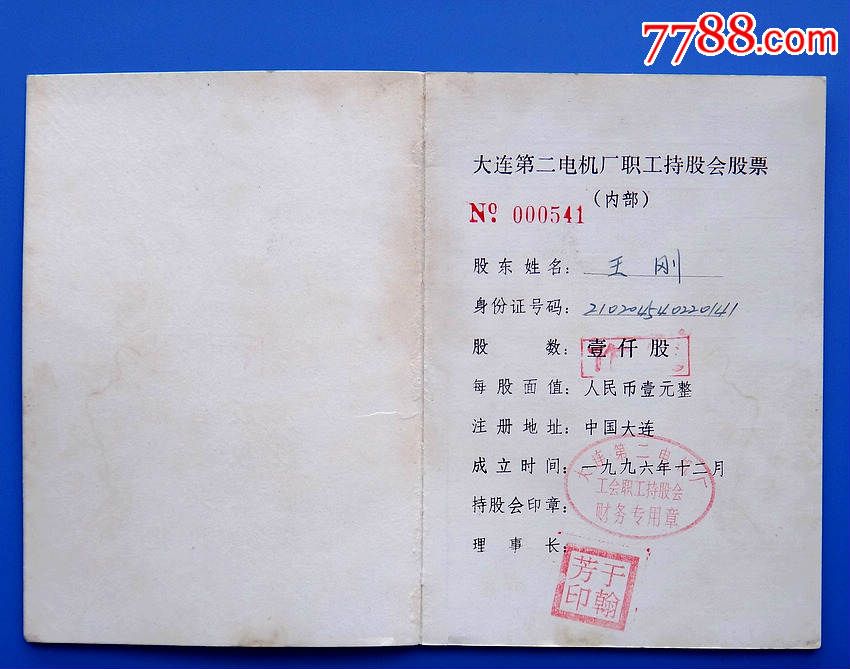 7788.com
大连第二电机厂职工持股会股票
(内部)
Nº 000541
股东姓名: 王刚
身份证号码: 210204540220141
股数: 壹仟股
每股面值: 人民币壹元整
注册地址: 中国大连
成立时间: 一九九六年十二月
大连第二电机厂
工会职工持股会
财务专用章
持股会印章:
理事长:
于翰
芳印